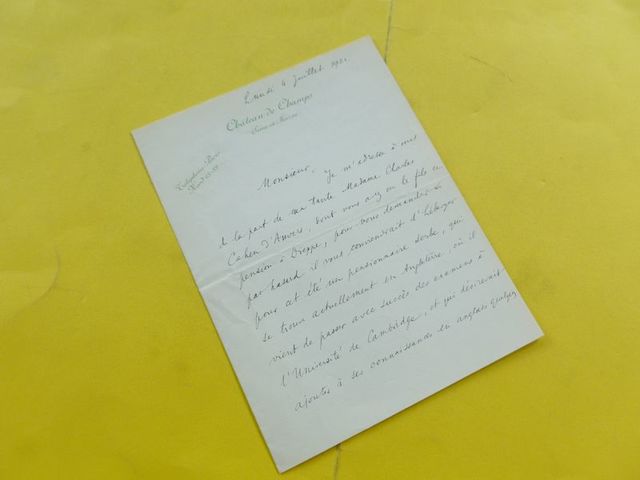 Lundi 4 Juillet 1921
Château de Champs
Seine et Marne
Téléphone
Monsieur,
Je m'adresse à vous
de la part de ma tante Madame Charles
Cahen d'Anvers, dont vous avez eu le fils en
pension à Dieppe, pour vous demander si
par hasard il vous conviendrait d'héberger
pour cet été un pensionnaire serbe, qui
se trouve actuellement en Angleterre, où il
vient de passer avec succès des examens à
l'Université de Cambridge, et qui désirerait
ajouter à ses connaissances en anglais quelques